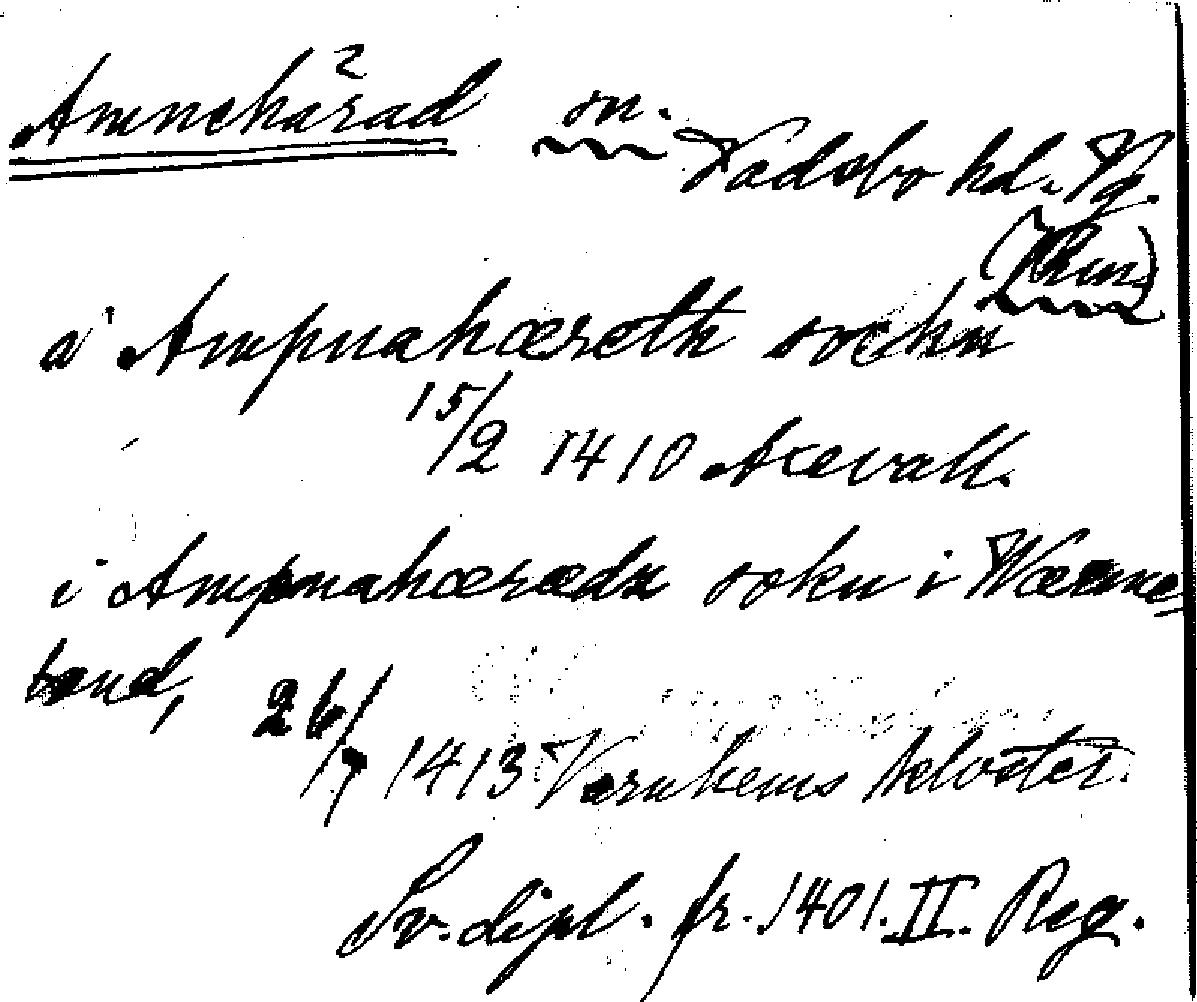 2
Amnehärad sn. Vadsbo hd. Vg.
a Ampnahæreth sochn
15/2 1410 Axevall.
i Ampnahærædz sokn i Wærme-
land, 26/7 1413 Varnhems kloster.
Sv. dipl. fr. 1401. II. Reg.